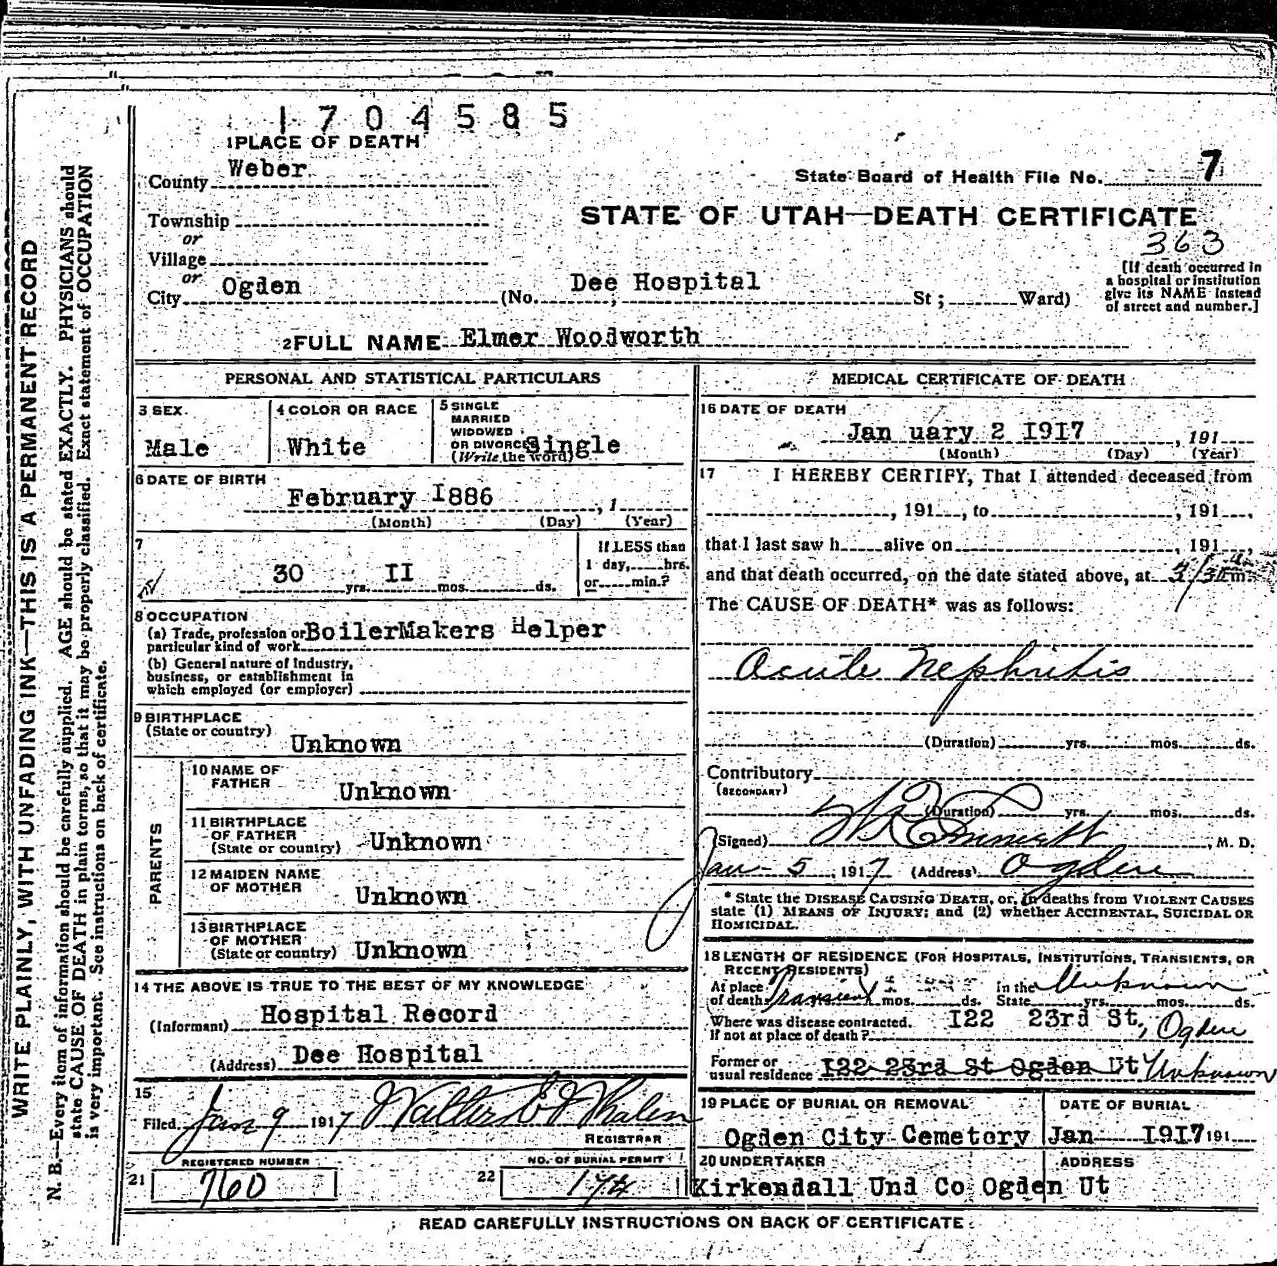 1704585
1 PLACE OF DEATH
County Weber
State Board of Health File No. 7
Township
or
Village
or
City Ogden (No. Dee Hospital St; Ward)
STATE OF UTAH—DEATH CERTIFICATE
363
[If death occurred in
a hospital or institution
give its NAME instead
of street and number.]
2 FULL NAME Elmer Woodworth
PERSONAL AND STATISTICAL PARTICULARS
3 SEX
Male
4 COLOR OR RACE
White
5 SINGLE
MARRIED
WIDOWED
OR DIVORCED
(Write the word)
Single
6 DATE OF BIRTH
February I886 , 1
(Month) (Day) (Year)
7
30 yrs. II mos. ds.
If LESS than
1 day, hrs.
or min.?
8 OCCUPATION
(a) Trade, profession or
particular kind of work
BoilerMakers Helper
(b) General nature of Industry,
business, or establishment in
which employed (or employer)
9 BIRTHPLACE
(State or country)
Unknown
PARENTS
10 NAME OF
FATHER
Unknown
11 BIRTHPLACE
OF FATHER
(State or country)
Unknown
12 MAIDEN NAME
OF MOTHER
Unknown
13 BIRTHPLACE
OF MOTHER
(State or country)
Unknown
14 THE ABOVE IS TRUE TO THE BEST OF MY KNOWLEDGE
(Informant) Hospital Record
(Address) Dee Hospital
15
Filed Jan 9 1917 Walter E Whalen
REGISTRAR
REGISTERED NUMBER
21 760
NO. OF BURIAL PERMIT
22 174
MEDICAL CERTIFICATE OF DEATH
16 DATE OF DEATH
Jan uary 2 I9I7 , 191
(Month) (Day) (Year)
17 I HEREBY CERTIFY, That I attended deceased from
, 191 , to , 191 ,
that I last saw h alive on , 191 ,
and that death occurred, on the date stated above, at m.
The CAUSE OF DEATH* was as follows:
Acute Nephritis
(Duration) yrs. mos. ds.
Contributory
(SECONDARY)
(Duration) yrs. mos. ds.
(Signed) Emmett , M. D.
Jan 5 , 1917 (Address) Ogden
* State the DISEASE CAUSING DEATH, or, in deaths from VIOLENT CAUSES
state (1) MEANS OF INJURY; and (2) whether ACCIDENTAL, SUICIDAL OR
HOMICIDAL.
18 LENGTH OF RESIDENCE (FOR HOSPITALS, INSTITUTIONS, TRANSIENTS, OR
RECENT RESIDENTS)
At place
of death Transient mos. ds.
In the
State yrs. mos. ds.
Unknown
Where was disease contracted.
If not at place of death?
I22 23rd St, Ogden
Former or
usual residence I22 23rd St Ogden Ut Unknown
19 PLACE OF BURIAL OR REMOVAL
Ogden City Cemetory
DATE OF BURIAL
Jan I9I7 191
20 UNDERTAKER
ADDRESS
Kirkendall Und Co Ogden Ut
READ CAREFULLY INSTRUCTIONS ON BACK OF CERTIFICATE
WRITE PLAINLY, WITH UNFADING INK—THIS IS A PERMANENT RECORD
N. B.—Every item of information should be carefully supplied. AGE should be stated EXACTLY. PHYSICIANS should
state CAUSE OF DEATH in plain terms, so that it may be properly classified. Exact statement of OCCUPATION
is very important. See instructions on back of certificate.